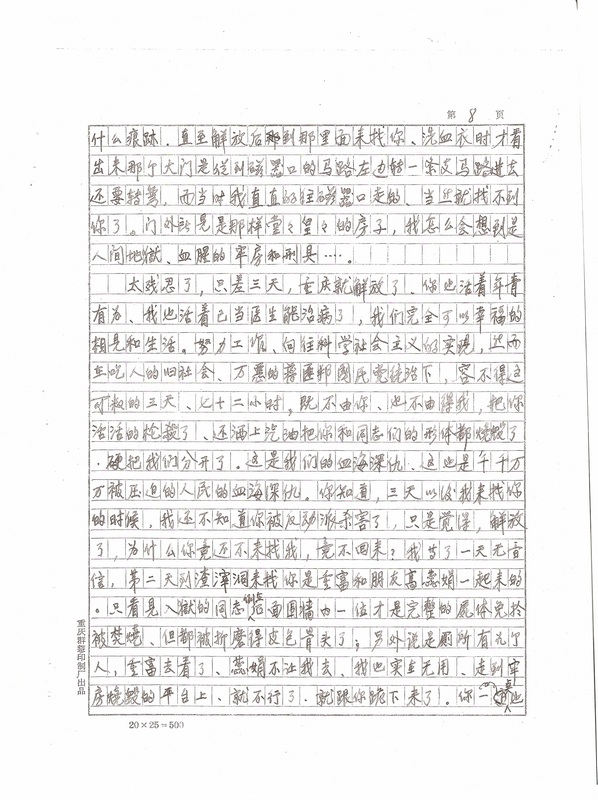 第 8 页
什么痕跡．直至解放后那到那里面来找你、洗血衣时才看
出来那个大门是從到磁器口的马路左边转一条支马路进去
还要转弯，而当时我直直的往磁器口走的、当然就找不到
你了。门外看見是那样堂々皇々的房子，我怎么会想到是
人间地獄、血腥的牢房和刑具……。
太残忍了，只差三天，重庆就解放了、你也活着年青
有为、我也活着已当医生能治病了，我们完全可以幸福的
相見和生活。努力工作、向往科学社会主义的实現，然而
在吃人的旧社会、万恶的蒋匪邦國民党統治下，容不得这
可数的三天、七十二小时，既不由你、也不由得我，把你
活活的枪殺了、还洒上汽油把你和同志们的形体都燒毁了
．硬把我们分开了。这是我们的血海深仇、这也是千千万
万被压迫的人民的血海深仇。你知道，三天以後我来找你
的时候，我还不知道你被反动派杀害了，只是覚得，解放
了，为什么你竟还不来找我，竟不回来？我等了一天无音
信，第二天到渣滓洞来找你是重富和朋友高蕊娟一起来的
。只看見入獄的同志倒在后面围墙由一位才是完整的屍体免於
被焚燒、但都被折磨得皮包骨头了；另外説是厠所有九个
人，重富去看了、蕊娟不让我去、我也实在无用、走到牢
房燒毁的平台上、就不行了．就跟你跪下来了。你一点也
重庆群慧印制厂出品
20×25=500